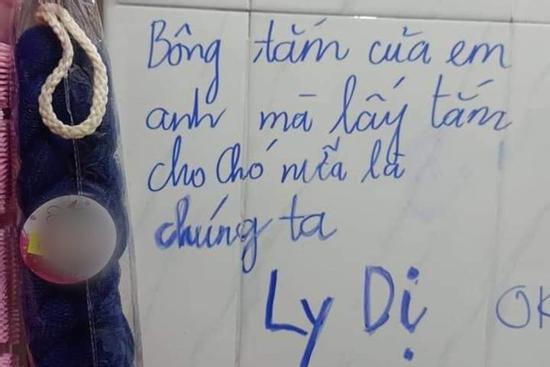 Bông tắm của em
anh mà lấy tắm
cho Chó nữa là
chúng ta
Ly Dị OK